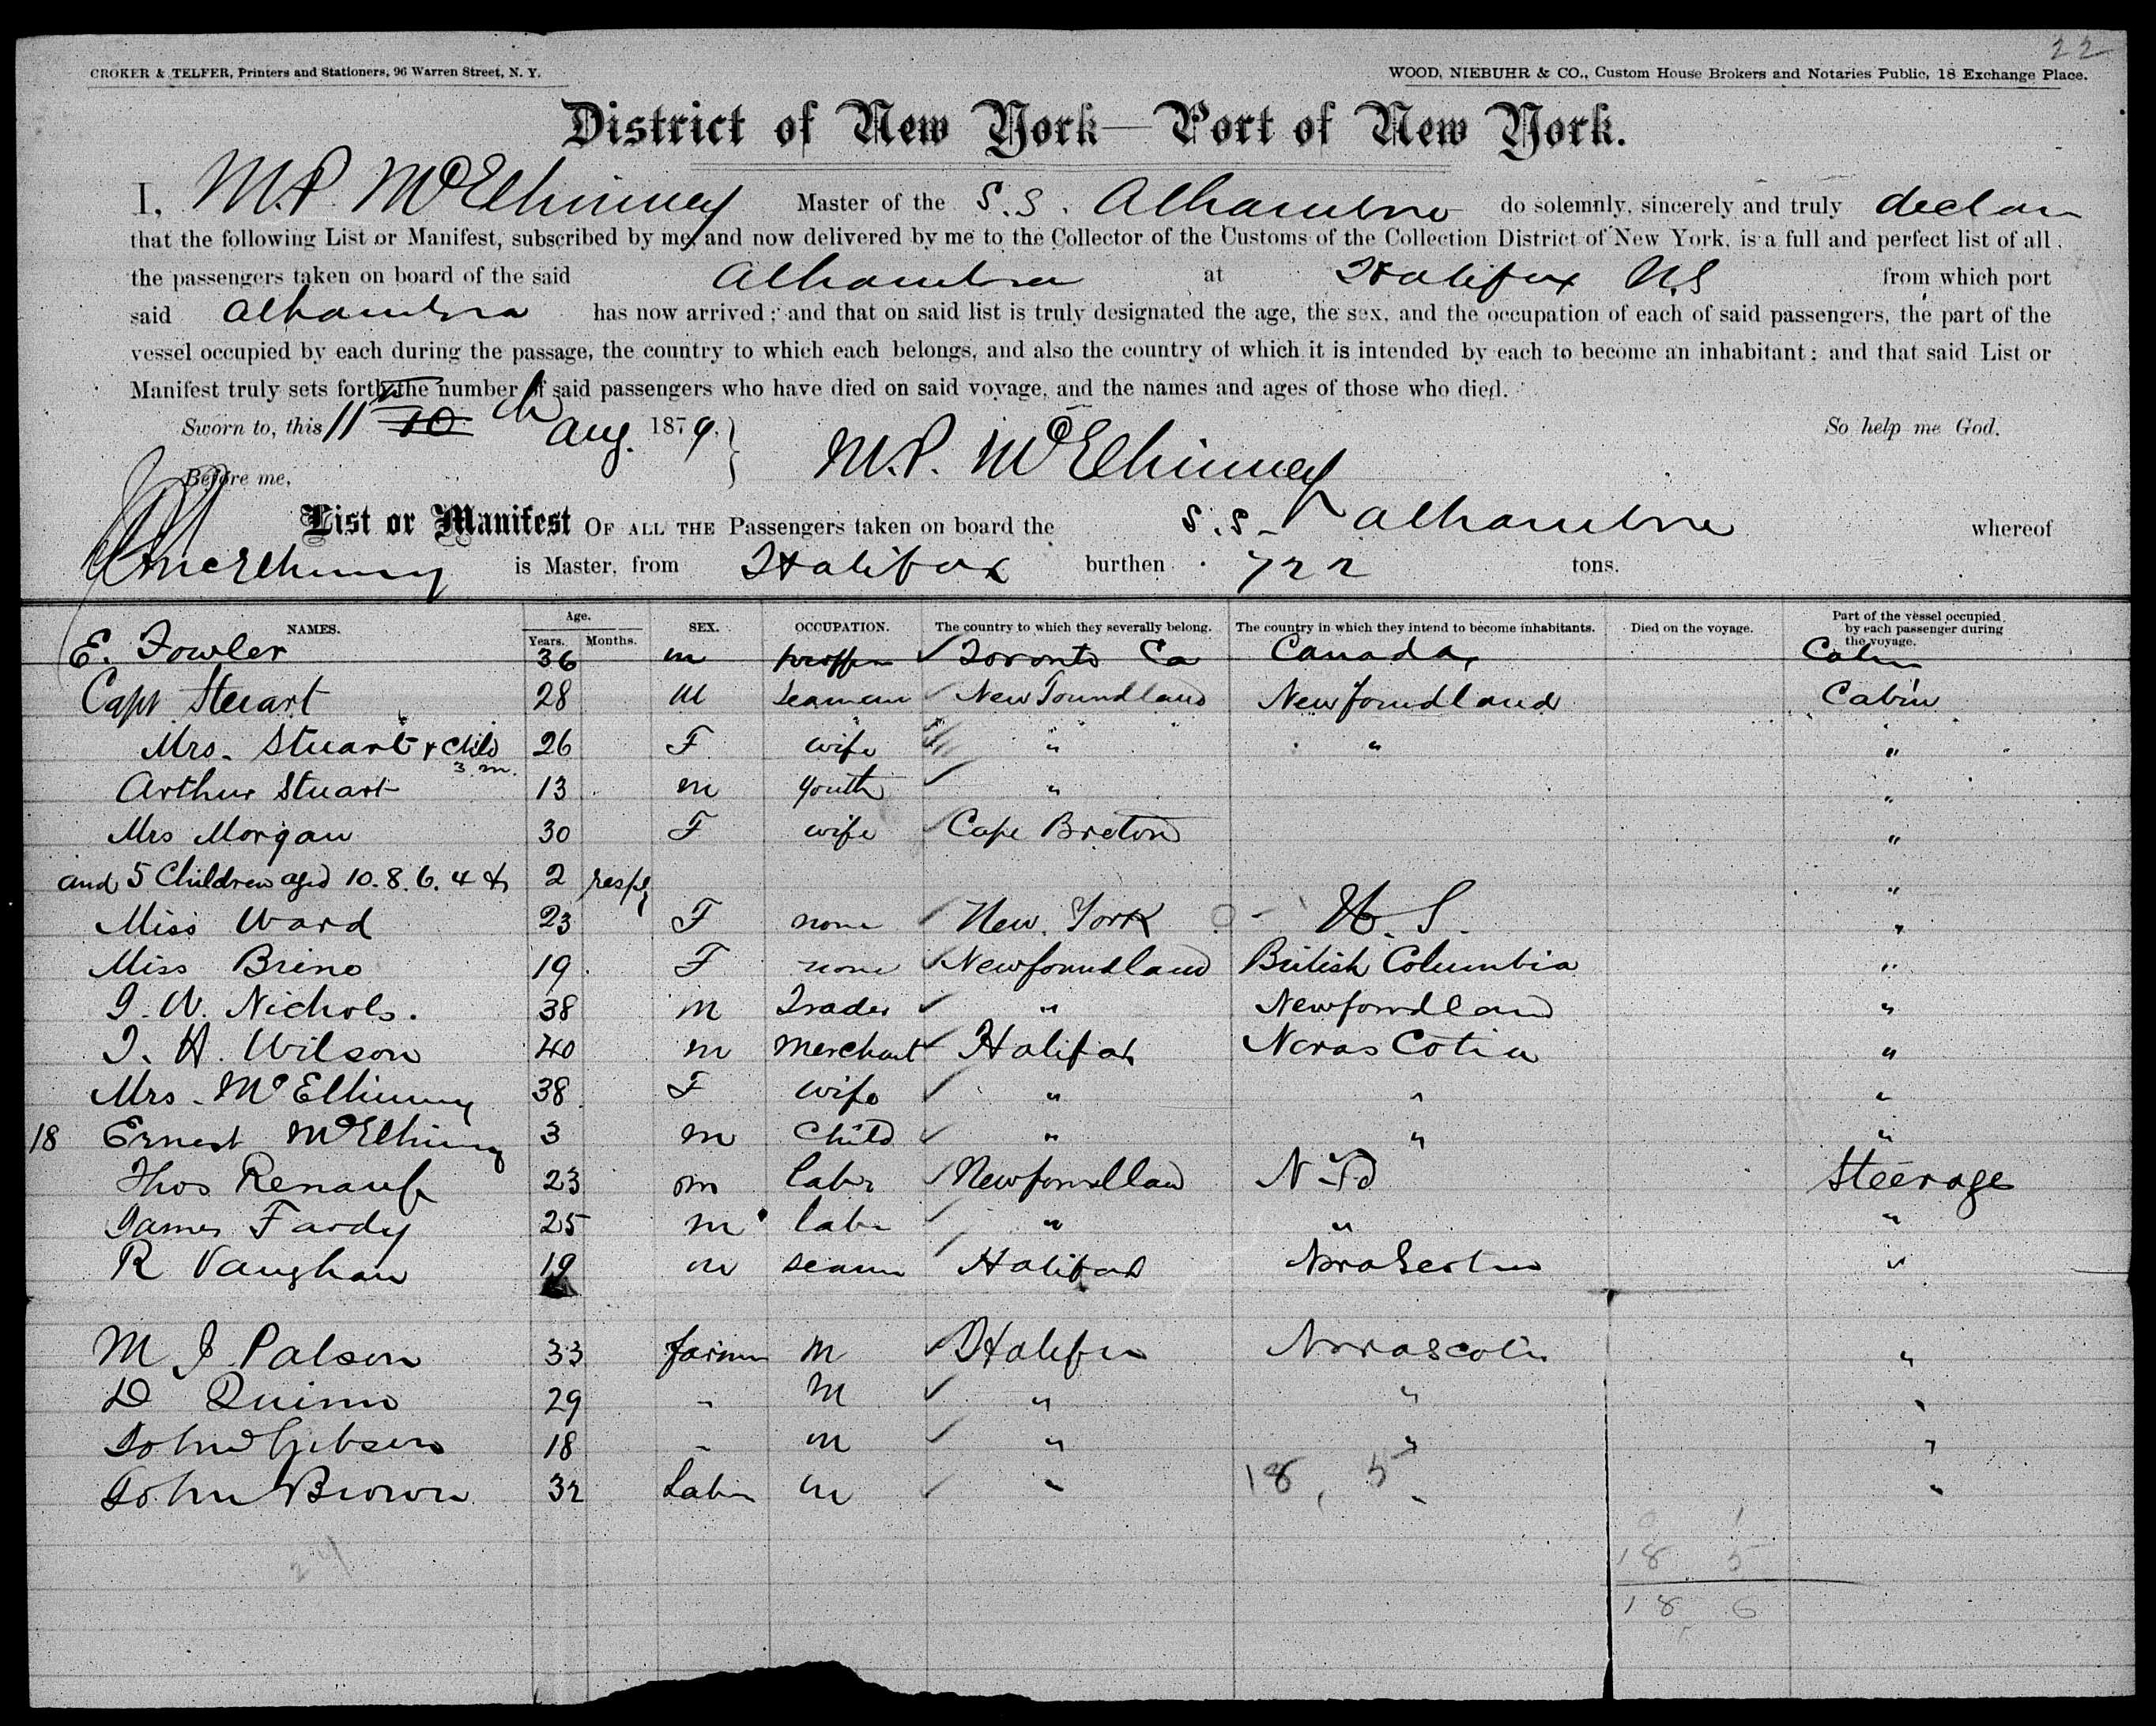 22
CROKER & TELFER, Printers and Stationers, 96 Warren Street, N. Y.
WOOD, NIEBUHR & CO., Custom House Brokers and Notaries Public, 18 Exchange Place.
District of New York—Port of New York.
I, M.P. McElhinney Master of the S.S. Alhambra do solemnly, sincerely and truly declare
that the following List or Manifest, subscribed by me, and now delivered by me to the Collector of the Customs of the Collection District of New York, is a full and perfect list of all
the passengers taken on board of the said Alhambra at Halifax N.S from which port
said Alhambra has now arrived; and that on said list is truly designated the age, the sex, and the occupation of each of said passengers, the part of the
vessel occupied by each during the passage, the country to which each belongs, and also the country of which it is intended by each to become an inhabitant; and that said List or
Manifest truly sets forth the number of said passengers who have died on said voyage, and the names and ages of those who died.
Sworn to, this 11 10 th Aug. 1879. So help me God.
Before me, M.P. McElhinney
List or Manifest OF ALL THE Passengers taken on board the S.S. Alhambra whereof
McElhinney is Master, from Halifax burthen 722 tons.
NAMES. Age. Years. Months. SEX. OCCUPATION. The country to which they severally belong. The country in which they intend to become inhabitants. Died on the voyage. Part of the vessel occupied by each passenger during the voyage.
E. Fowler 36 m Toronto Ca Canada, Cabin
Capt Steuart 28 M Seaman Newfoundland Newfoundland Cabin
Mrs. Stuart & Child 3 m. 26 F wife " " "
Arthur Stuart 13 m youth " "
Mrs Morgan 30 F wife Cape Breton "
and 5 Children aged 10. 8. 6. 4 & 2 respy "
Miss Ward 23 F none New York U. S. "
Miss Brine 19 F none Newfoundland British Columbia "
J. W. Nichols. 38 m Trader " Newfoundland "
J. H. Wilson 40 m Merchant Halifax Nova Scotia "
Mrs. McElhinney 38 F wife " " "
18 Ernest McElhinney 3 m Child " " "
Thos Renauf 23 m labr Newfoundland N Fd Steerage
James Fardy 25 m labr " " "
R Vaughan 19 m seaman Halifax Nova Scotia "
M J Palson 33 farmer M Halifax Nova Scotia "
D Quinn 29 " M " " "
John Gibson 18 " m " " "
John Brown 32 Labr m " " "
18, 5
24
18 5
18 6